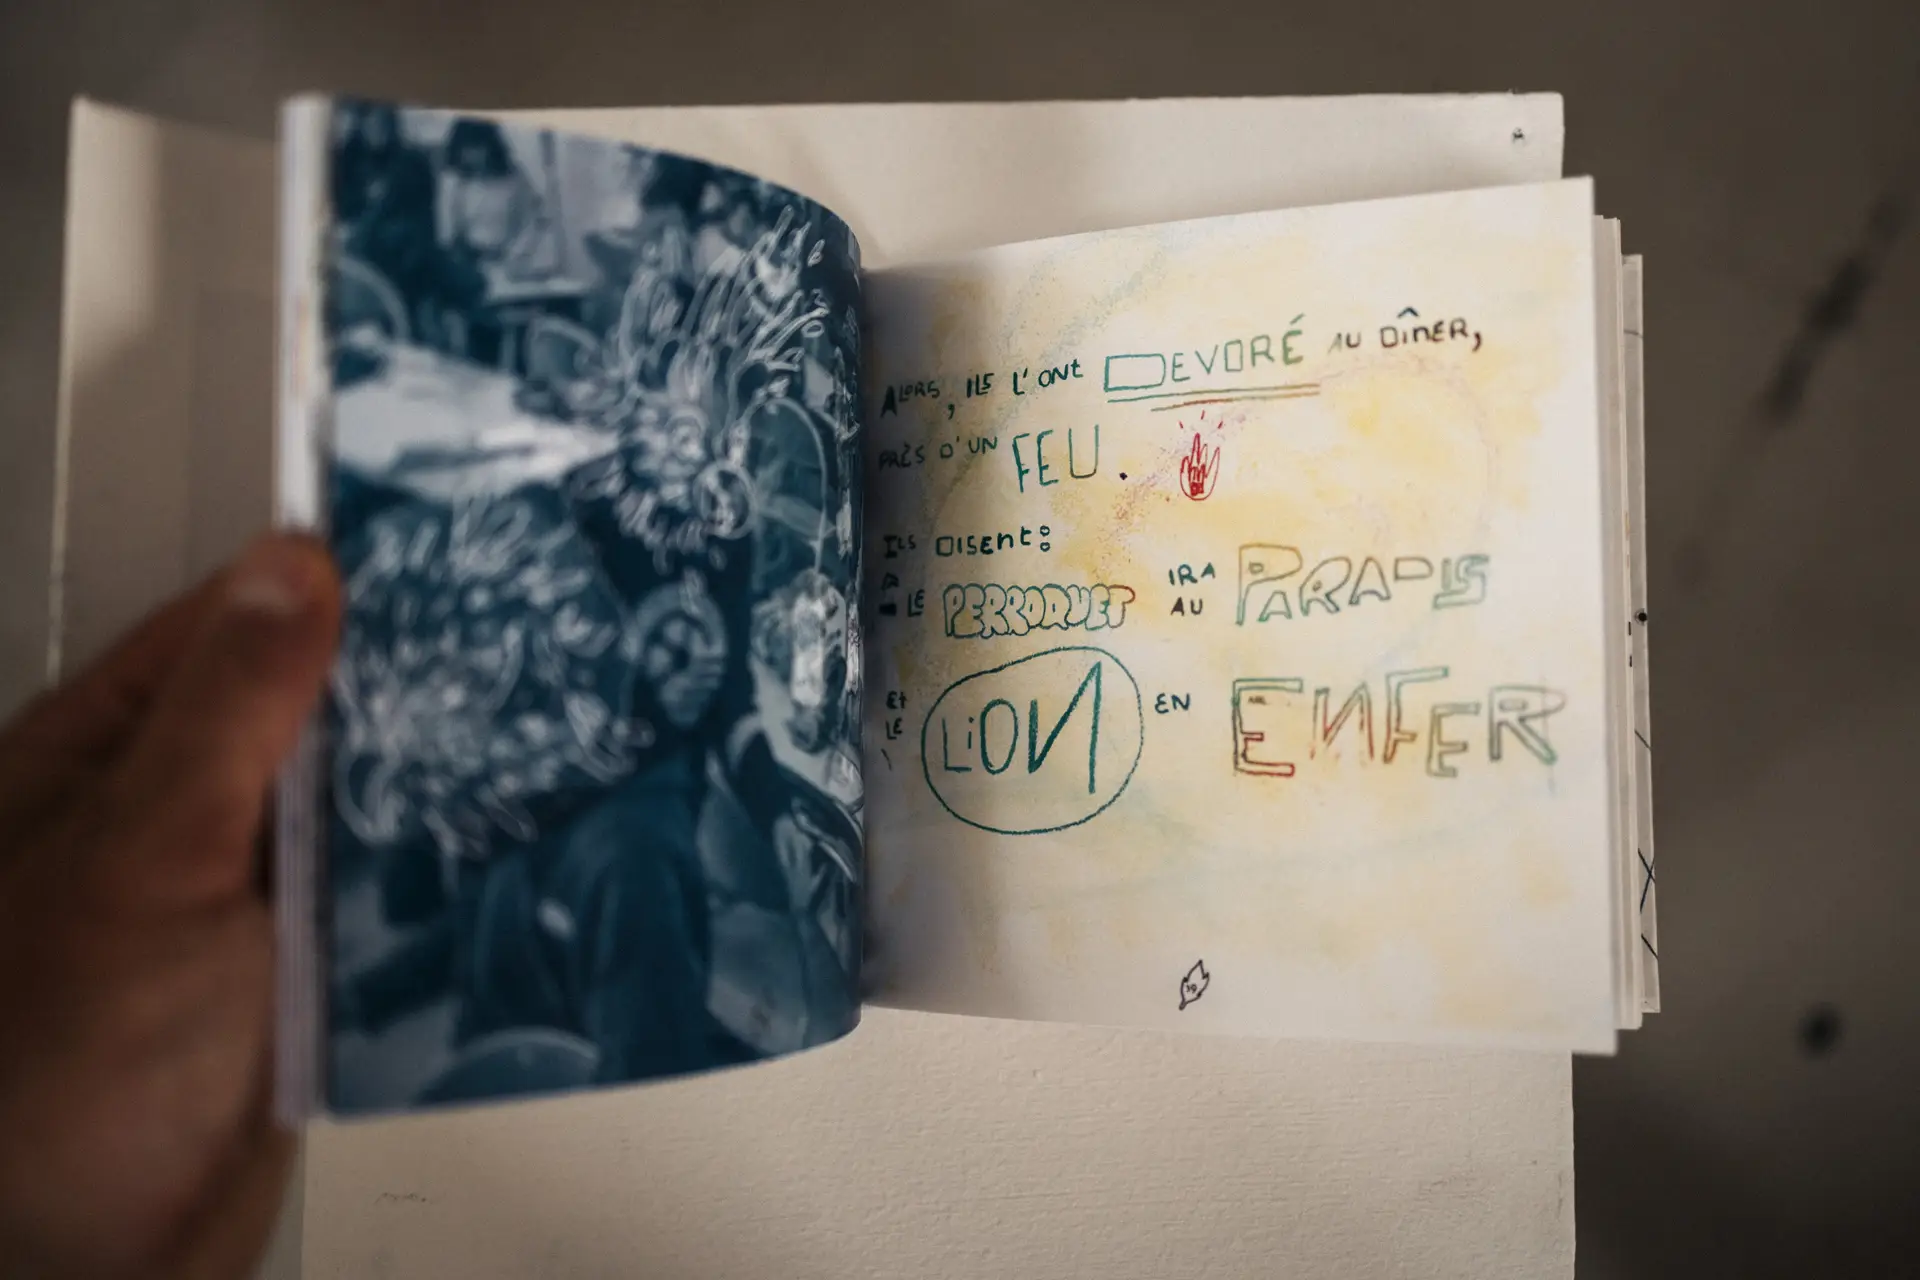 ALORS, ILS L'ONT DEVORÉ AU DÎNER,
PRÈS D'UN FEU.
ILS DISENT:
LE PERROQUET IRA AU PARADIS
ET LE LION EN ENFER
19